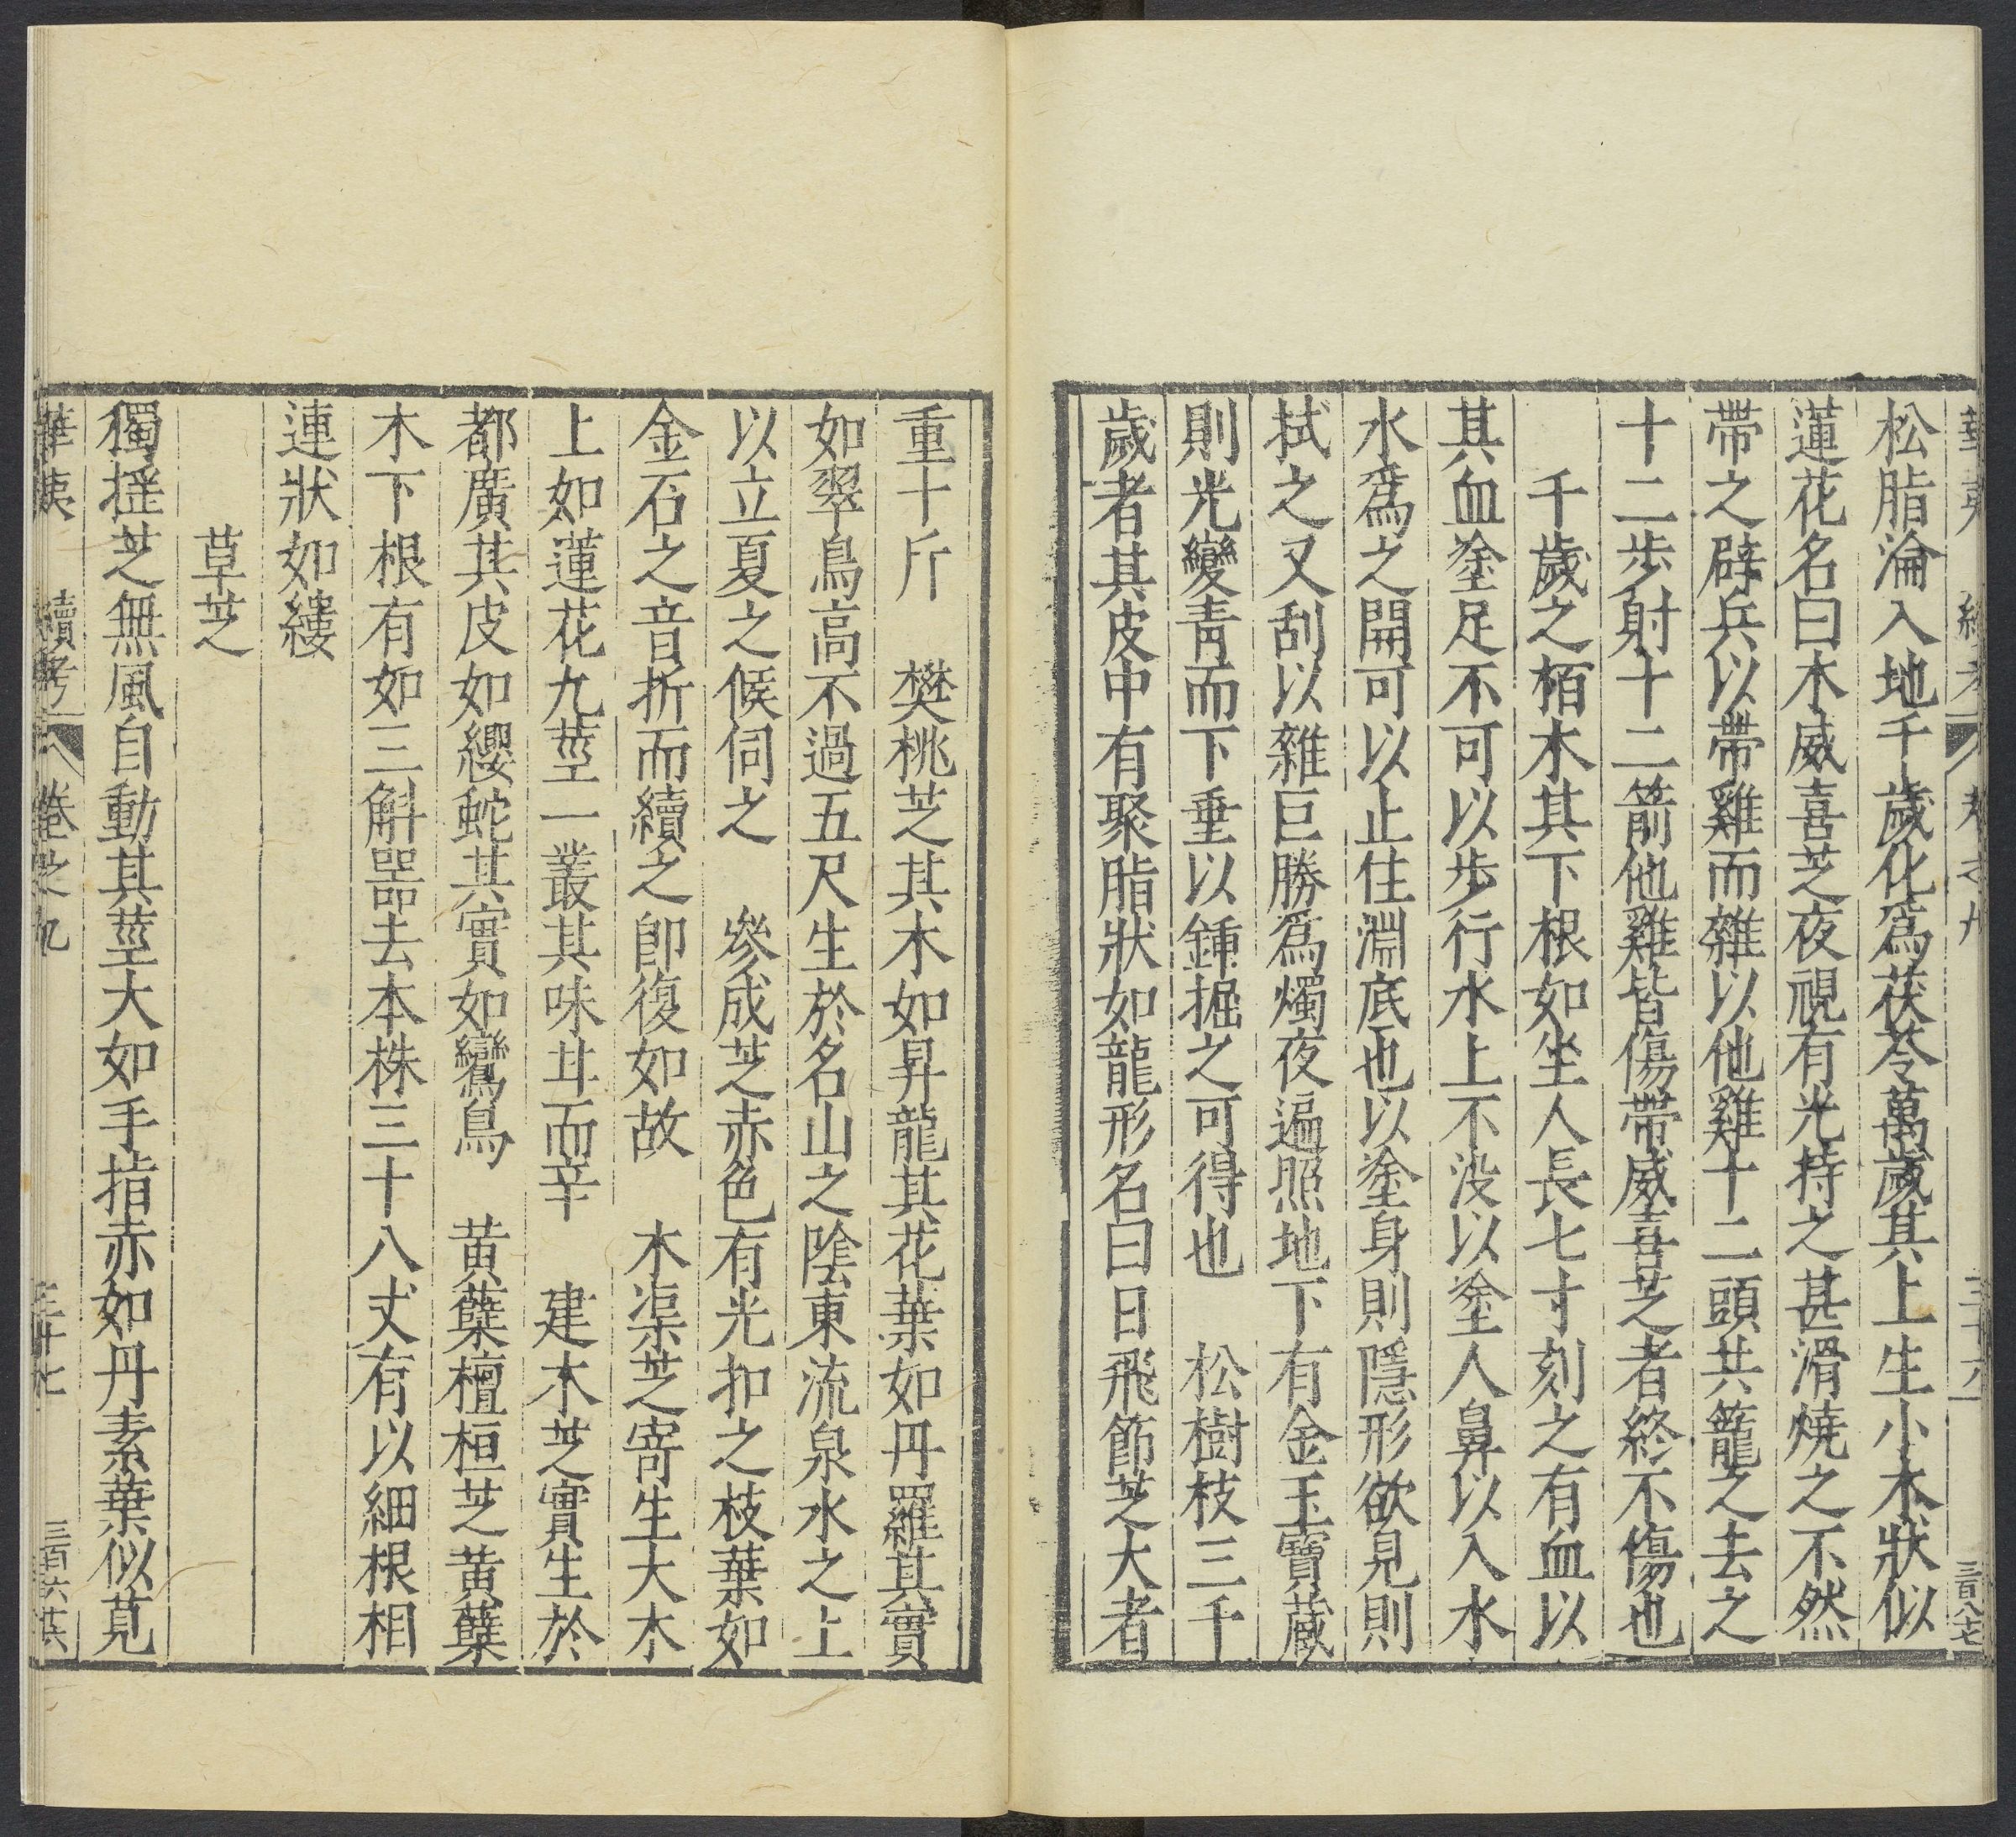 松脂淪入地千歲化爲茯苓萬歲其上生小木狀似
蓮花名曰木威喜芝夜視有光持之甚滑燒之不然
帶之辟兵以帶雞而雜以他雞十二頭共籠之去之
十二步射十二箭他雞皆傷帶威喜芝者終不傷也
千歲之栢木其下根如坐人長七寸刻之有血以
其血塗足不可以步行水上不没以塗人鼻以入水
水爲之開可以止住淵底也以塗身則隱形欲見則
拭之又刮以雜巨勝爲燭夜遍照地下有金玉寶蔵
則光變青而下垂以鍾掘之可得也　松樹枝三千
歲者其皮中有聚脂狀如龍形名曰日飛節芝大者
重十斤　樊桃芝其木如昇龍其花葉如丹羅其實
如翠鳥高不過五尺生於名山之陰東流泉水之上
以立夏之候伺之　參成芝赤色有光扣之枝葉如
金石之音折而續之卽復如故　木渠芝寄生大木
上如蓮花九莖一叢其味甘而辛　建木芝實生於
都廣其皮如纓蛇其實如鸞鳥　黄蘖檀桓芝黄蘖
木下根有如三斛器去本株三十八丈有以細根相
連狀如縷
草芝
獨揺芝無風自動其莖大如手指赤如丹素葉似莧
華夷　續考　卷之九　三十七